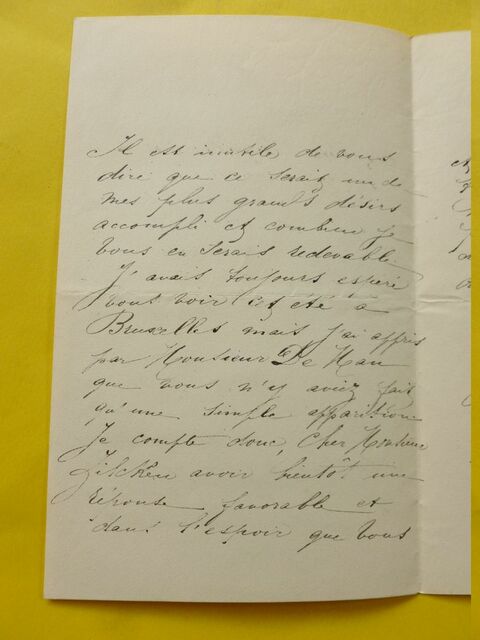 Il est inutile de vous
dire que ce serait un de
mes plus grands désirs
accompli et combien je
vous en serais redevable.
J'avais toujours espéré
vous voir cet été à
Bruxelles mais j'ai appris
par Monsieur De Man
que vous n'y aviez fait
qu'une simple apparition
Je compte donc, Cher Monsieur
Zilcken avoir bientôt une
réponse favorable et
dans l'espoir que vous